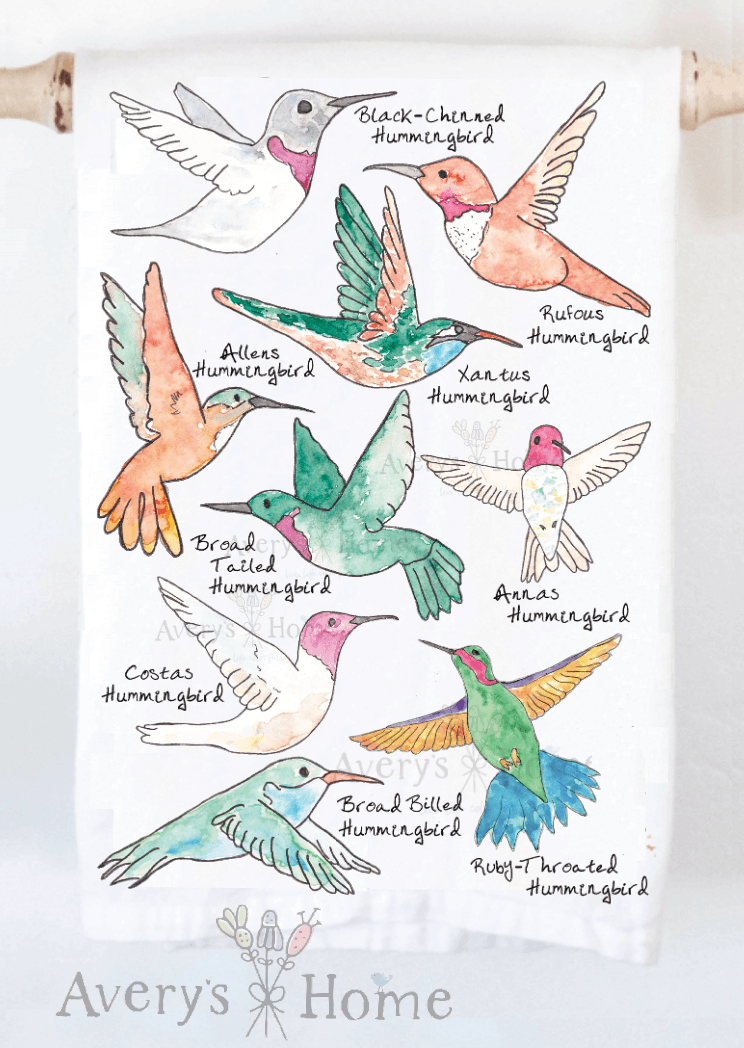 Black-Chinned
Hummingbird
Rufous
Hummingbird
Allens
Hummingbird
Xantus
Hummingbird
Broad
Tailed
Hummingbird
Annas
Hummingbird
Costas
Hummingbird
Broad Billed
Hummingbird
Ruby-Throated
Hummingbird
Avery's Home
Avery's Home
Avery's Home
Avery's Home